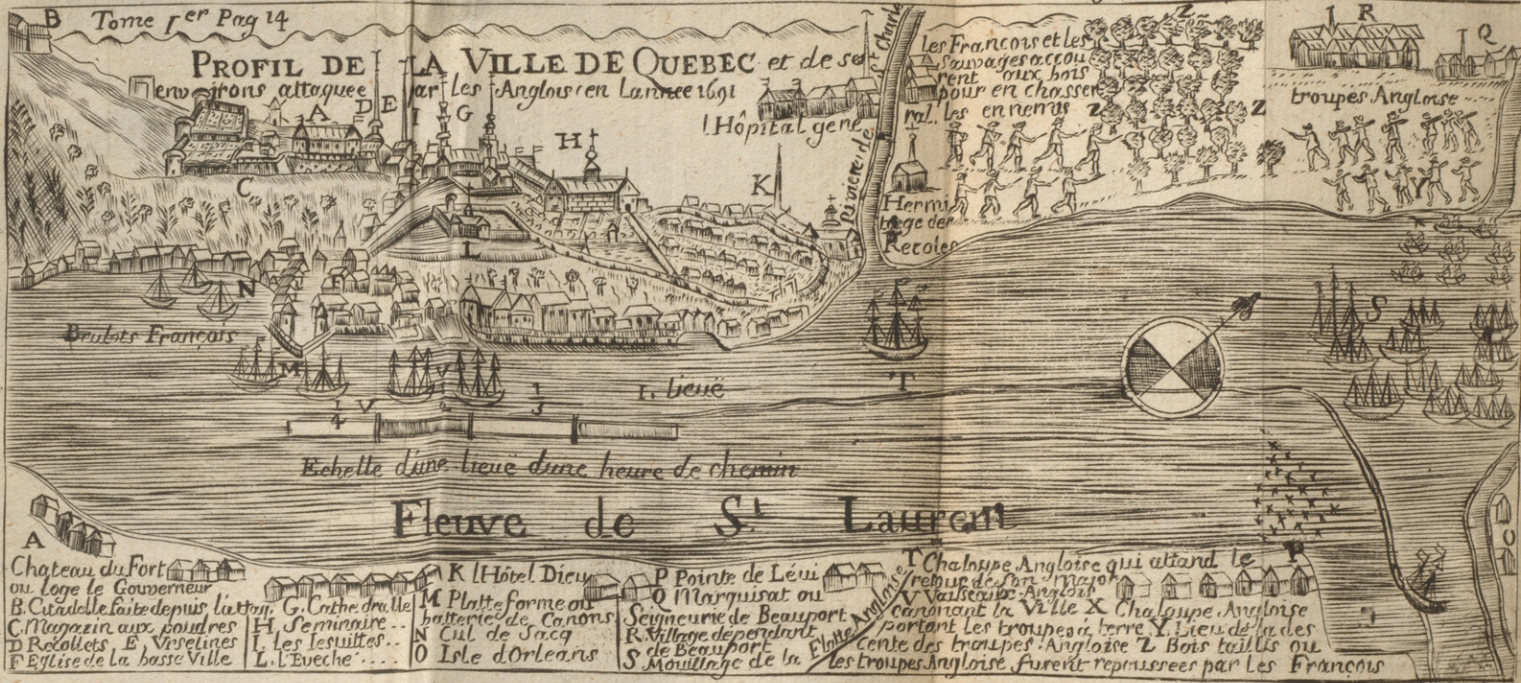 B
Tome I.er Pag 14
PROFIL DE LA VILLE DE QUEBEC et de se
environs attaquee par les Anglois en Lannee 1691
A D E I G H
C
K
L
N
l'Hôpital gene
ral.
Rivierre de
St. Charle
les Francois et les
Sauvages accou
rent aux bois
pour en chasser
les ennemis
Z
Z Z
Hermi
tage des
Recoles
I R
I Q
troupes Angloise
Y
X
Brulots François
M
V
V
T
S
1/4
1/3
1. lieuë
Echelle d'une lieuë d'une heure de chemin
Fleuve de St. Laurent
P
O
A
Chateau du Fort
ou loge le Gouverneur
B. Citadelle faite depuis l'attaq.
C. Magazin aux poudres
D Recollets E Vrselines
F Eglise de la basse Ville
G. Cathedralle
H. Seminaire..
I. les Iesuittes..
L. l'Eveché....
K l'Hôtel Dieu
M Platte forme ou
batterie de Canons
N Cul de Sacq
O Isle d'Orleans
P Pointe de Lévi
Q Marquisat ou
Seigneurie de Beauport
R. Village dependant
de Beauport
S Mouillage de la Flotte Angloise
T Chaloupe Angloise qui attand le
retour de son major
V Vaisseaux Anglois
canonant la Ville X Chaloupe Angloise
portant les troupes à terre Y. Lieu de la des
cente des troupes Angloise Z Bois taillis ou
les troupes Angloise furent repoussees par les François